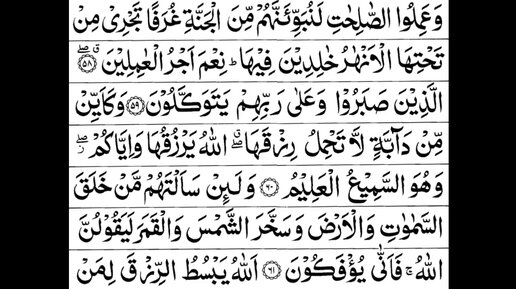 وَعَمِلُوا الصّٰلِحٰتِ لَنُبَوِّئَنَّهُمْ مِّنَ الْجَنَّةِ غُرَفًا تَجْرِىْ مِنْ
تَحْتِهَا الْاَنْهٰرُ خٰلِدِيْنَ فِيْهَا ؕ نِعْمَ اَجْرُ الْعٰمِلِيْنَ ۖۗ ﴿۵۸﴾
الَّذِيْنَ صَبَرُوْا وَعَلٰى رَبِّهِمْ يَتَوَكَّلُوْنَ ﴿۵۹﴾ وَكَاَيِّنْ
مِّنْ دَآبَّةٍ لَّا تَحْمِلُ رِزْقَهَا ۖۗ اَللّٰهُ يَرْزُقُهَا وَاِيَّاكُمْ ۖؗ
وَهُوَ السَّمِيْعُ الْعَلِيْمُ ﴿۶۰﴾ وَلَئِنْ سَاَلْتَهُمْ مَّنْ خَلَقَ
السَّمٰوٰتِ وَالْاَرْضَ وَسَخَّرَ الشَّمْسَ وَالْقَمَرَ لَيَقُوْلُنَّ
اللّٰهُ ۚ فَاَنّٰى يُؤْفَكُوْنَ ﴿۶۱﴾ اَللّٰهُ يَبْسُطُ الرِّزْقَ لِمَنْ